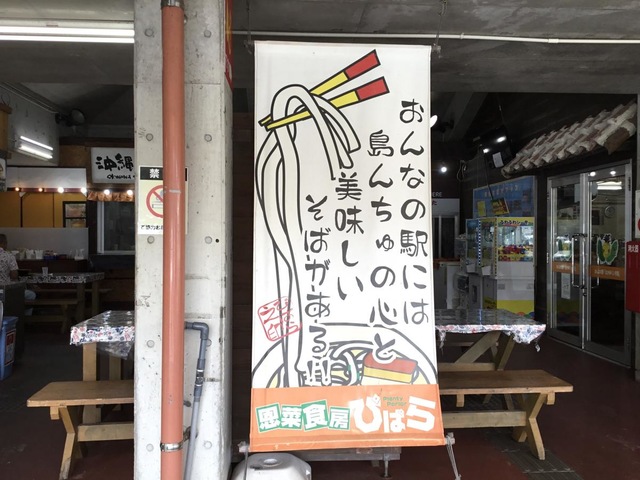 おんなの駅には
島んちゅの心と
美味しい
そばがある!!!
恩菜食房
ぴはら
沖縄
禁